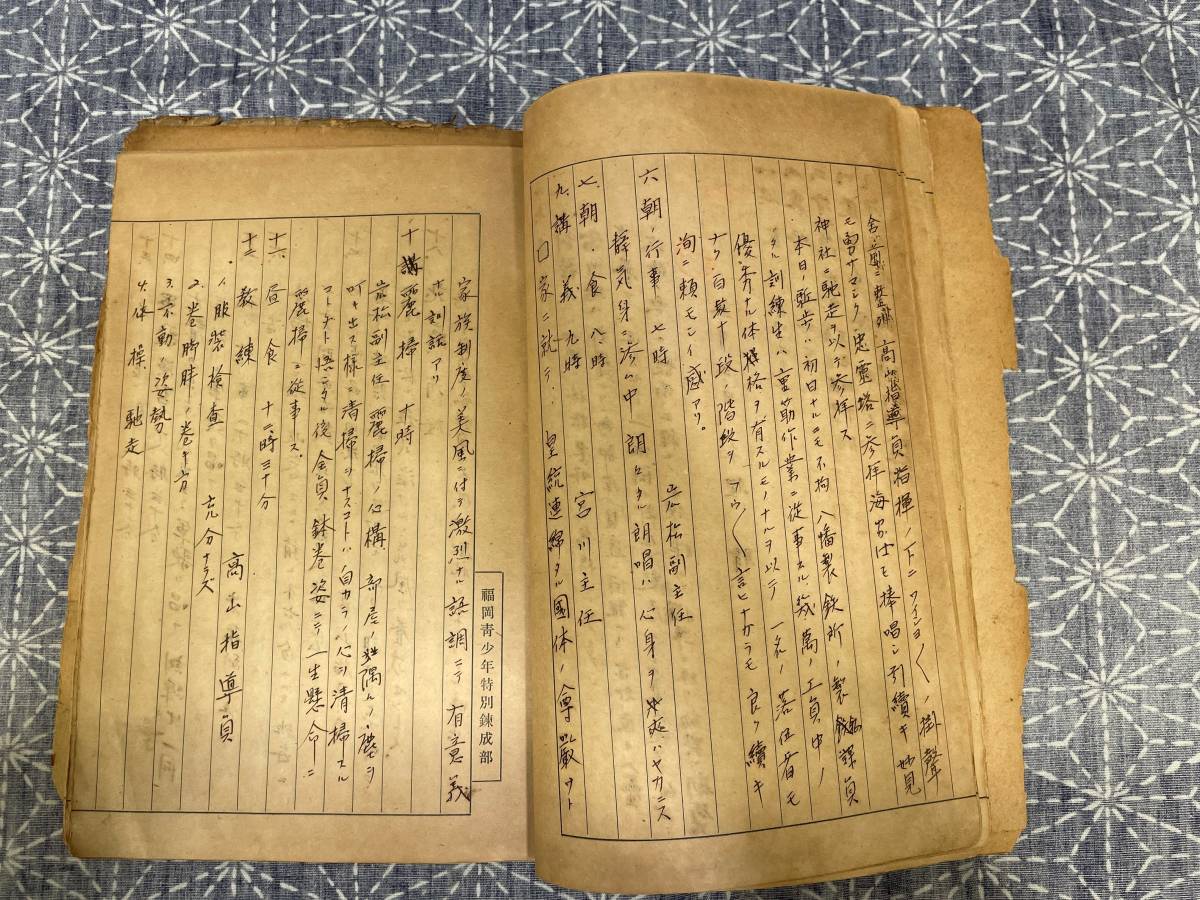 舎前ニ整列 高山指導員指揮ノ下ニワイシヨ〱ノ掛聲
モ勇サマシク忠霊塔ニ参拝海ゆかばを捧唱シ引續キ妙見
神社ニ馳走ヲ以テ参拝ス
本日ノ駈歩ハ初日ナルニモ不拘 八幡製鉄所ノ製銑課員
タル訓練生ハ重筋作業ニ従事セル幾萬ノ工員中ノ
優秀ナル体格ヲ有スルモノナルヲ以テ 一名ノ落伍者モ
ナク 百数十段ノ階段ヲ フウ〱言ヒナガラモ 良ク續キ
洵ニ頼モシイ感アリ。
六、朝ノ行事 七時 岩松副主任
静気身ニ泌ム中 朗々タル朗唱ハ心身ヲ爽ハヤカニス
七、朝食 八時
九、講義 九時 宮川主任
家ニ就テ 皇統連綿タル國体ノ尊厳サト
家族制度ノ美風ニ付テ激烈ナル語調ニテ 有意義
ナル訓話アリ
十、講 麗掃 十時
岩松副主任 麗掃ノ心構 部屋ノ隅々ノ塵ヲ
叩キ出ス様ニ清掃ヲナスコトハ自カラノ心ヲ清掃スル
コトナリト悟ラシメタル後 全員鉢巻姿ニテ一生懸命ニ
麗掃ニ従事ス
十二、昼食 十二時三十分
十三、教練 高山指導員
1、服装検査 充分ナラズ
2、巻脚絆ノ巻キ方
3、不動ノ姿勢
4、体操 馳走
福岡靑少年特別錬成部